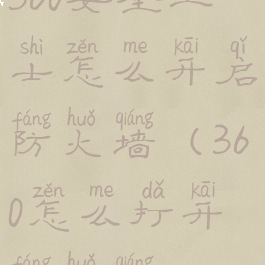 shì zěn me kāi qǐ
士怎么开启
fáng huǒ qiáng
防火墙(36
zěn me dǎ kāi
0怎么打开
fáng huǒ qiáng